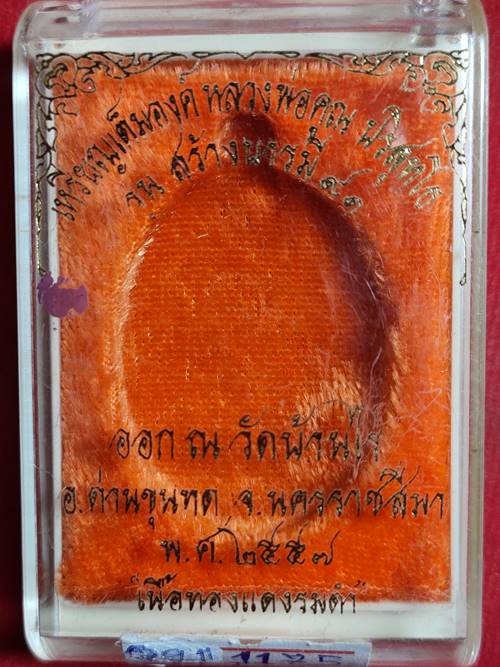 เหรียญเต็มองค์ หลวงพ่อคูณ ปริสุทโธ
รุ่น สร้างบารมี ๙๑
ออก ณ วัดบ้านไร่
อ.ด่านขุนทด จ.นครราชสีมา
พ.ศ.๒๕๕๗
เนื้อทองแดงรมดำ